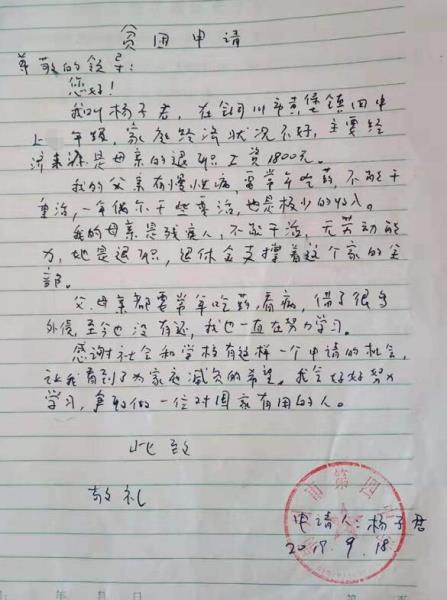 贫困申请
尊敬的领导:
您好!
我叫杨子君,在银川市黄堡镇四中
上 年级,家庭经济状况不好,主要经
济来源是母亲的退职工资1800元。
我的父亲有慢性病 要常年吃药,不能干
重活,一年偶尔干些零活,也是极少的收入。
我的母亲是残疾人,不能干活,无劳动能
力,她是退职,退休金支撑着这个家的全
部。
父母亲都要常年吃药,看病,借了很多
外债,至今也没有还,我也一直在努力学习。
感谢社会和学校有这样一个申请的机会,
让我看到了为家庭减负的希望。我会好好努力
学习,争取做一位对国家有用的人。
此致
敬礼
市第四
申请人:杨子君
2019.9.18